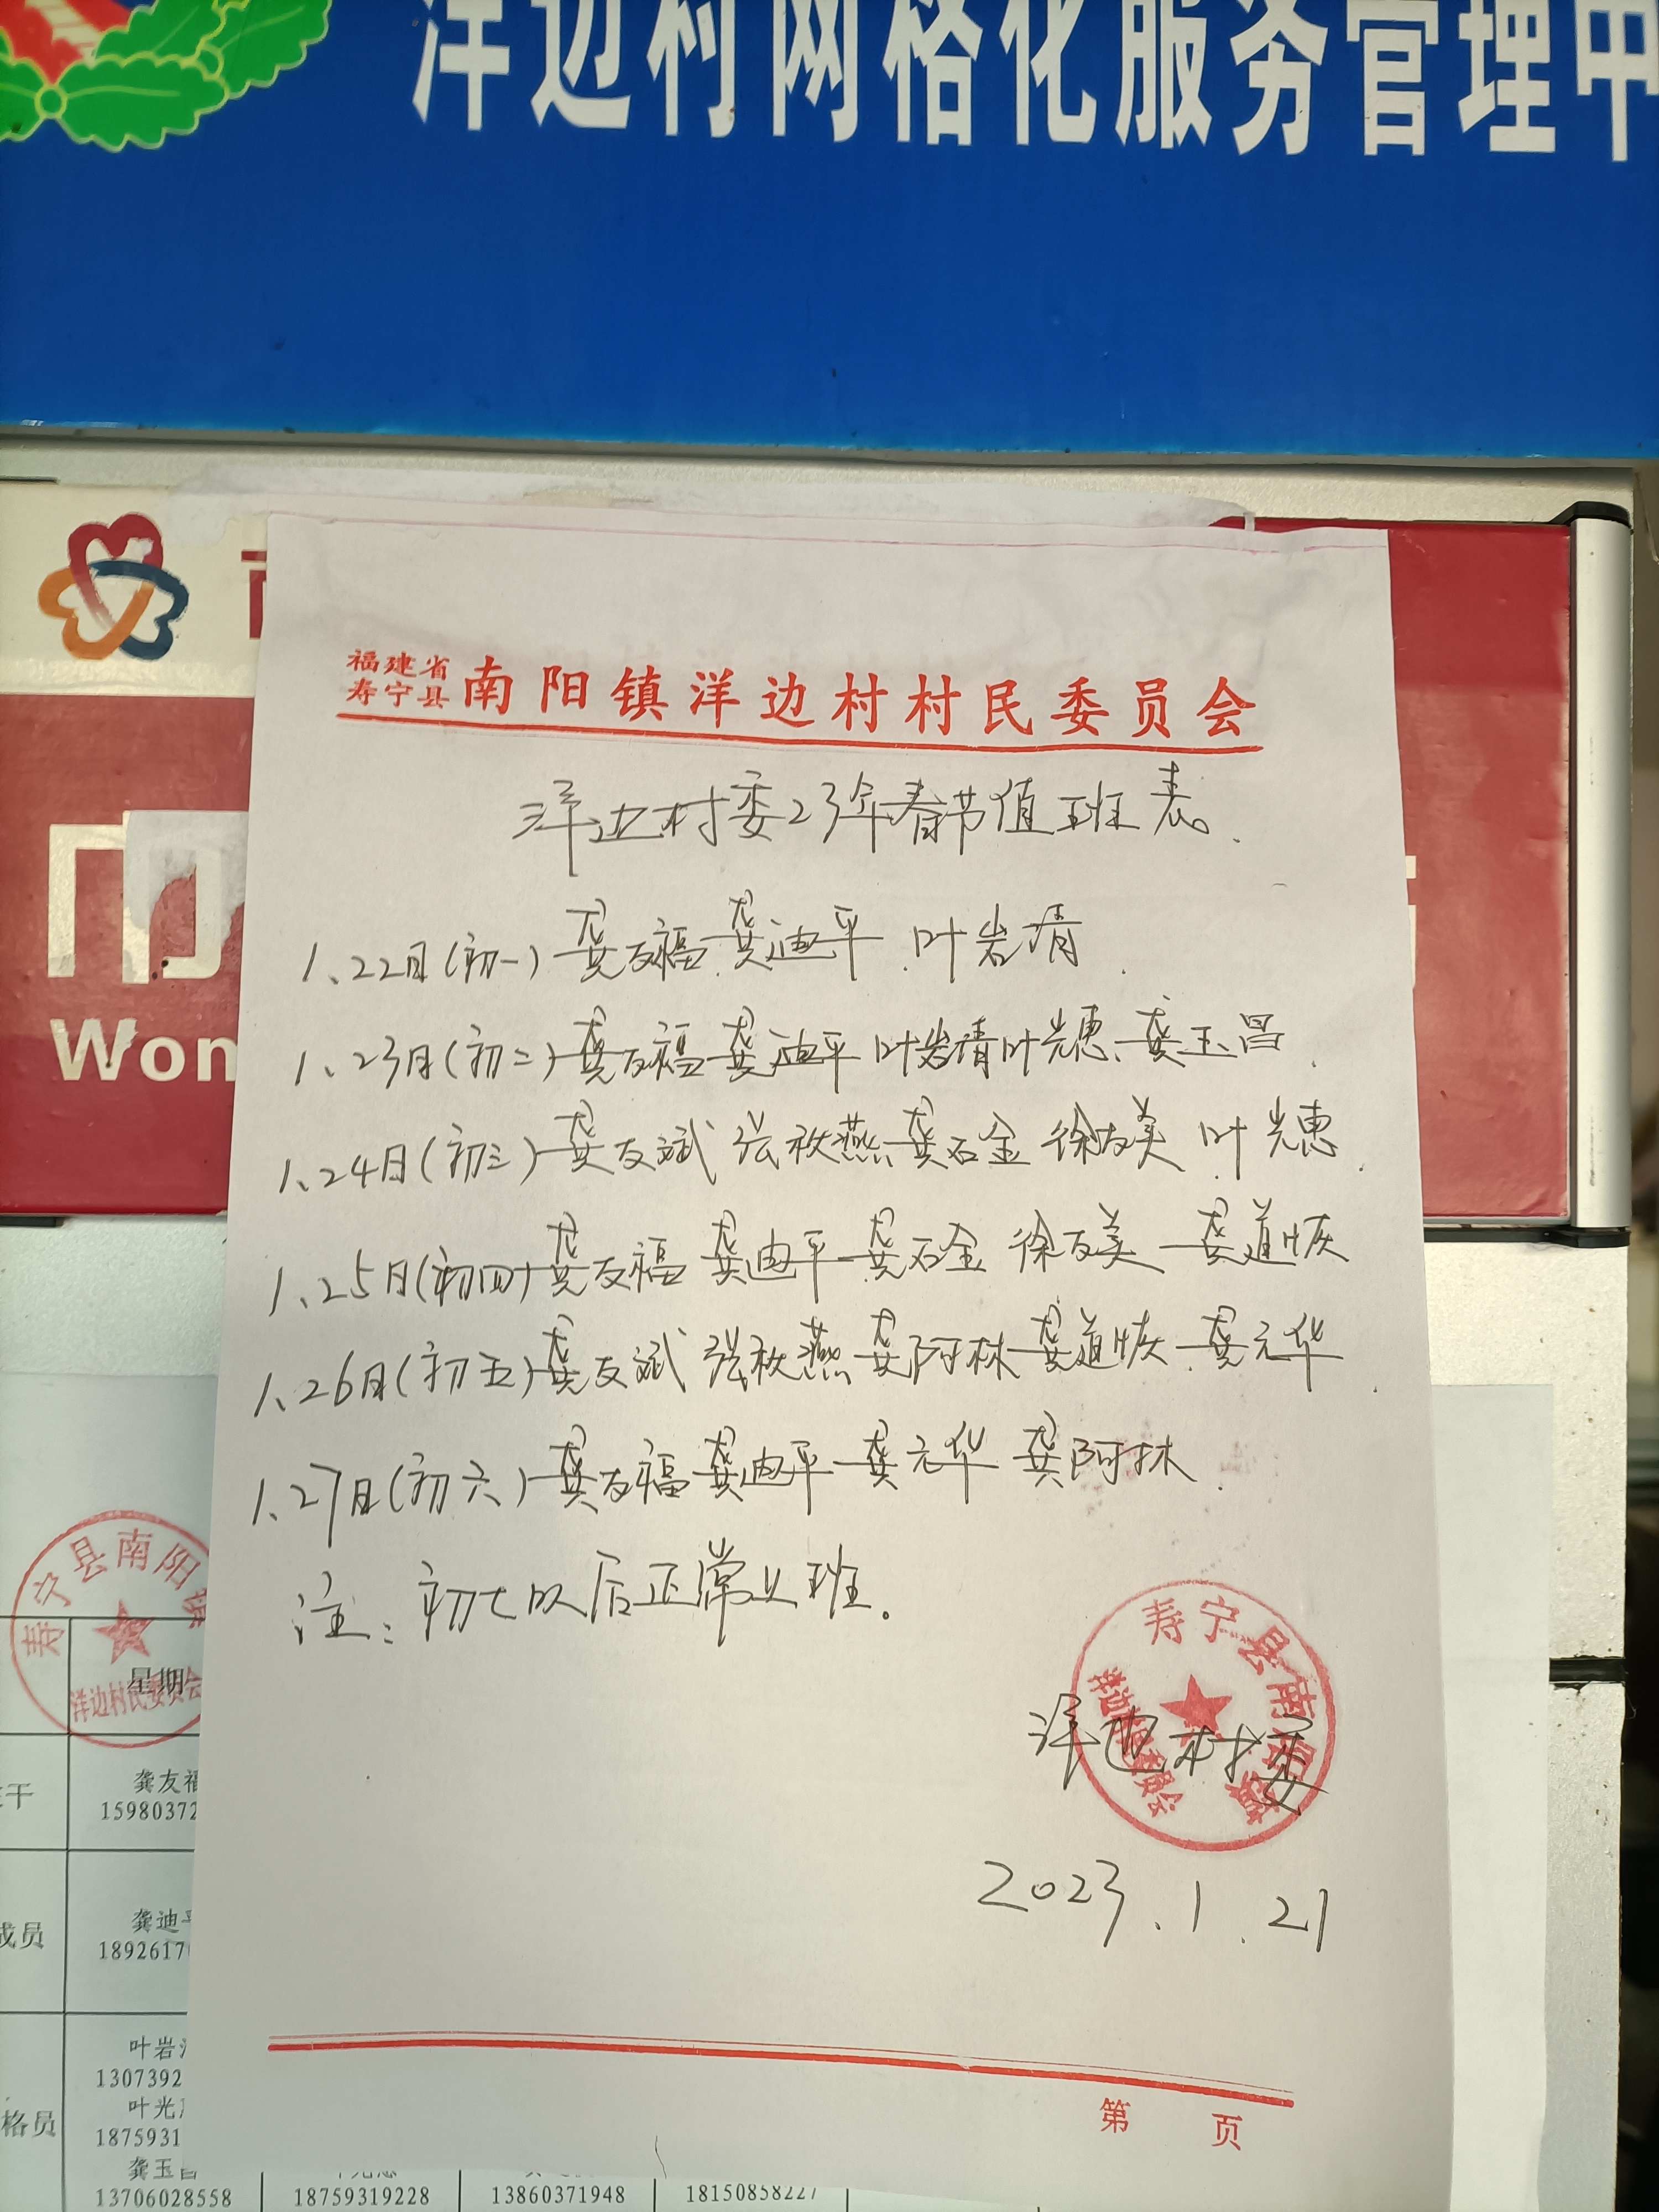 洋边村网格化服务管理中
Won
福建省
寿宁县 南阳镇洋边村村民委员会
洋边村委23年春节值班表.
1、22日(初一)龚友福.龚迪平.叶岩清.
1、23日(初二)龚友福龚迪平叶岩清叶光惠、龚玉昌.
1、24日(初三)龚友斌 张秋燕、龚石金 徐友美 叶光惠.
1、25日(初四)龚友福 龚迪平龚石金 徐友美 龚道恢
1、26日(初五)龚友斌 张秋燕、龚阿林龚道恢.龚元华.
1、27日(初六)龚友福龚迪平龚元华 龚阿林.
注:初七以后正常上班.
寿宁县南阳镇
洋边村民委员会
洋边村委
2023.1.21
第 页
寿宁县南阳镇
洋边村民委员会
星期
干
龚友福
15980372
成员
龚迪平
1892617
格员
叶岩
13073920
叶光
18759311
龚玉昌
13706028558
18759319228
13860371948
18150858227